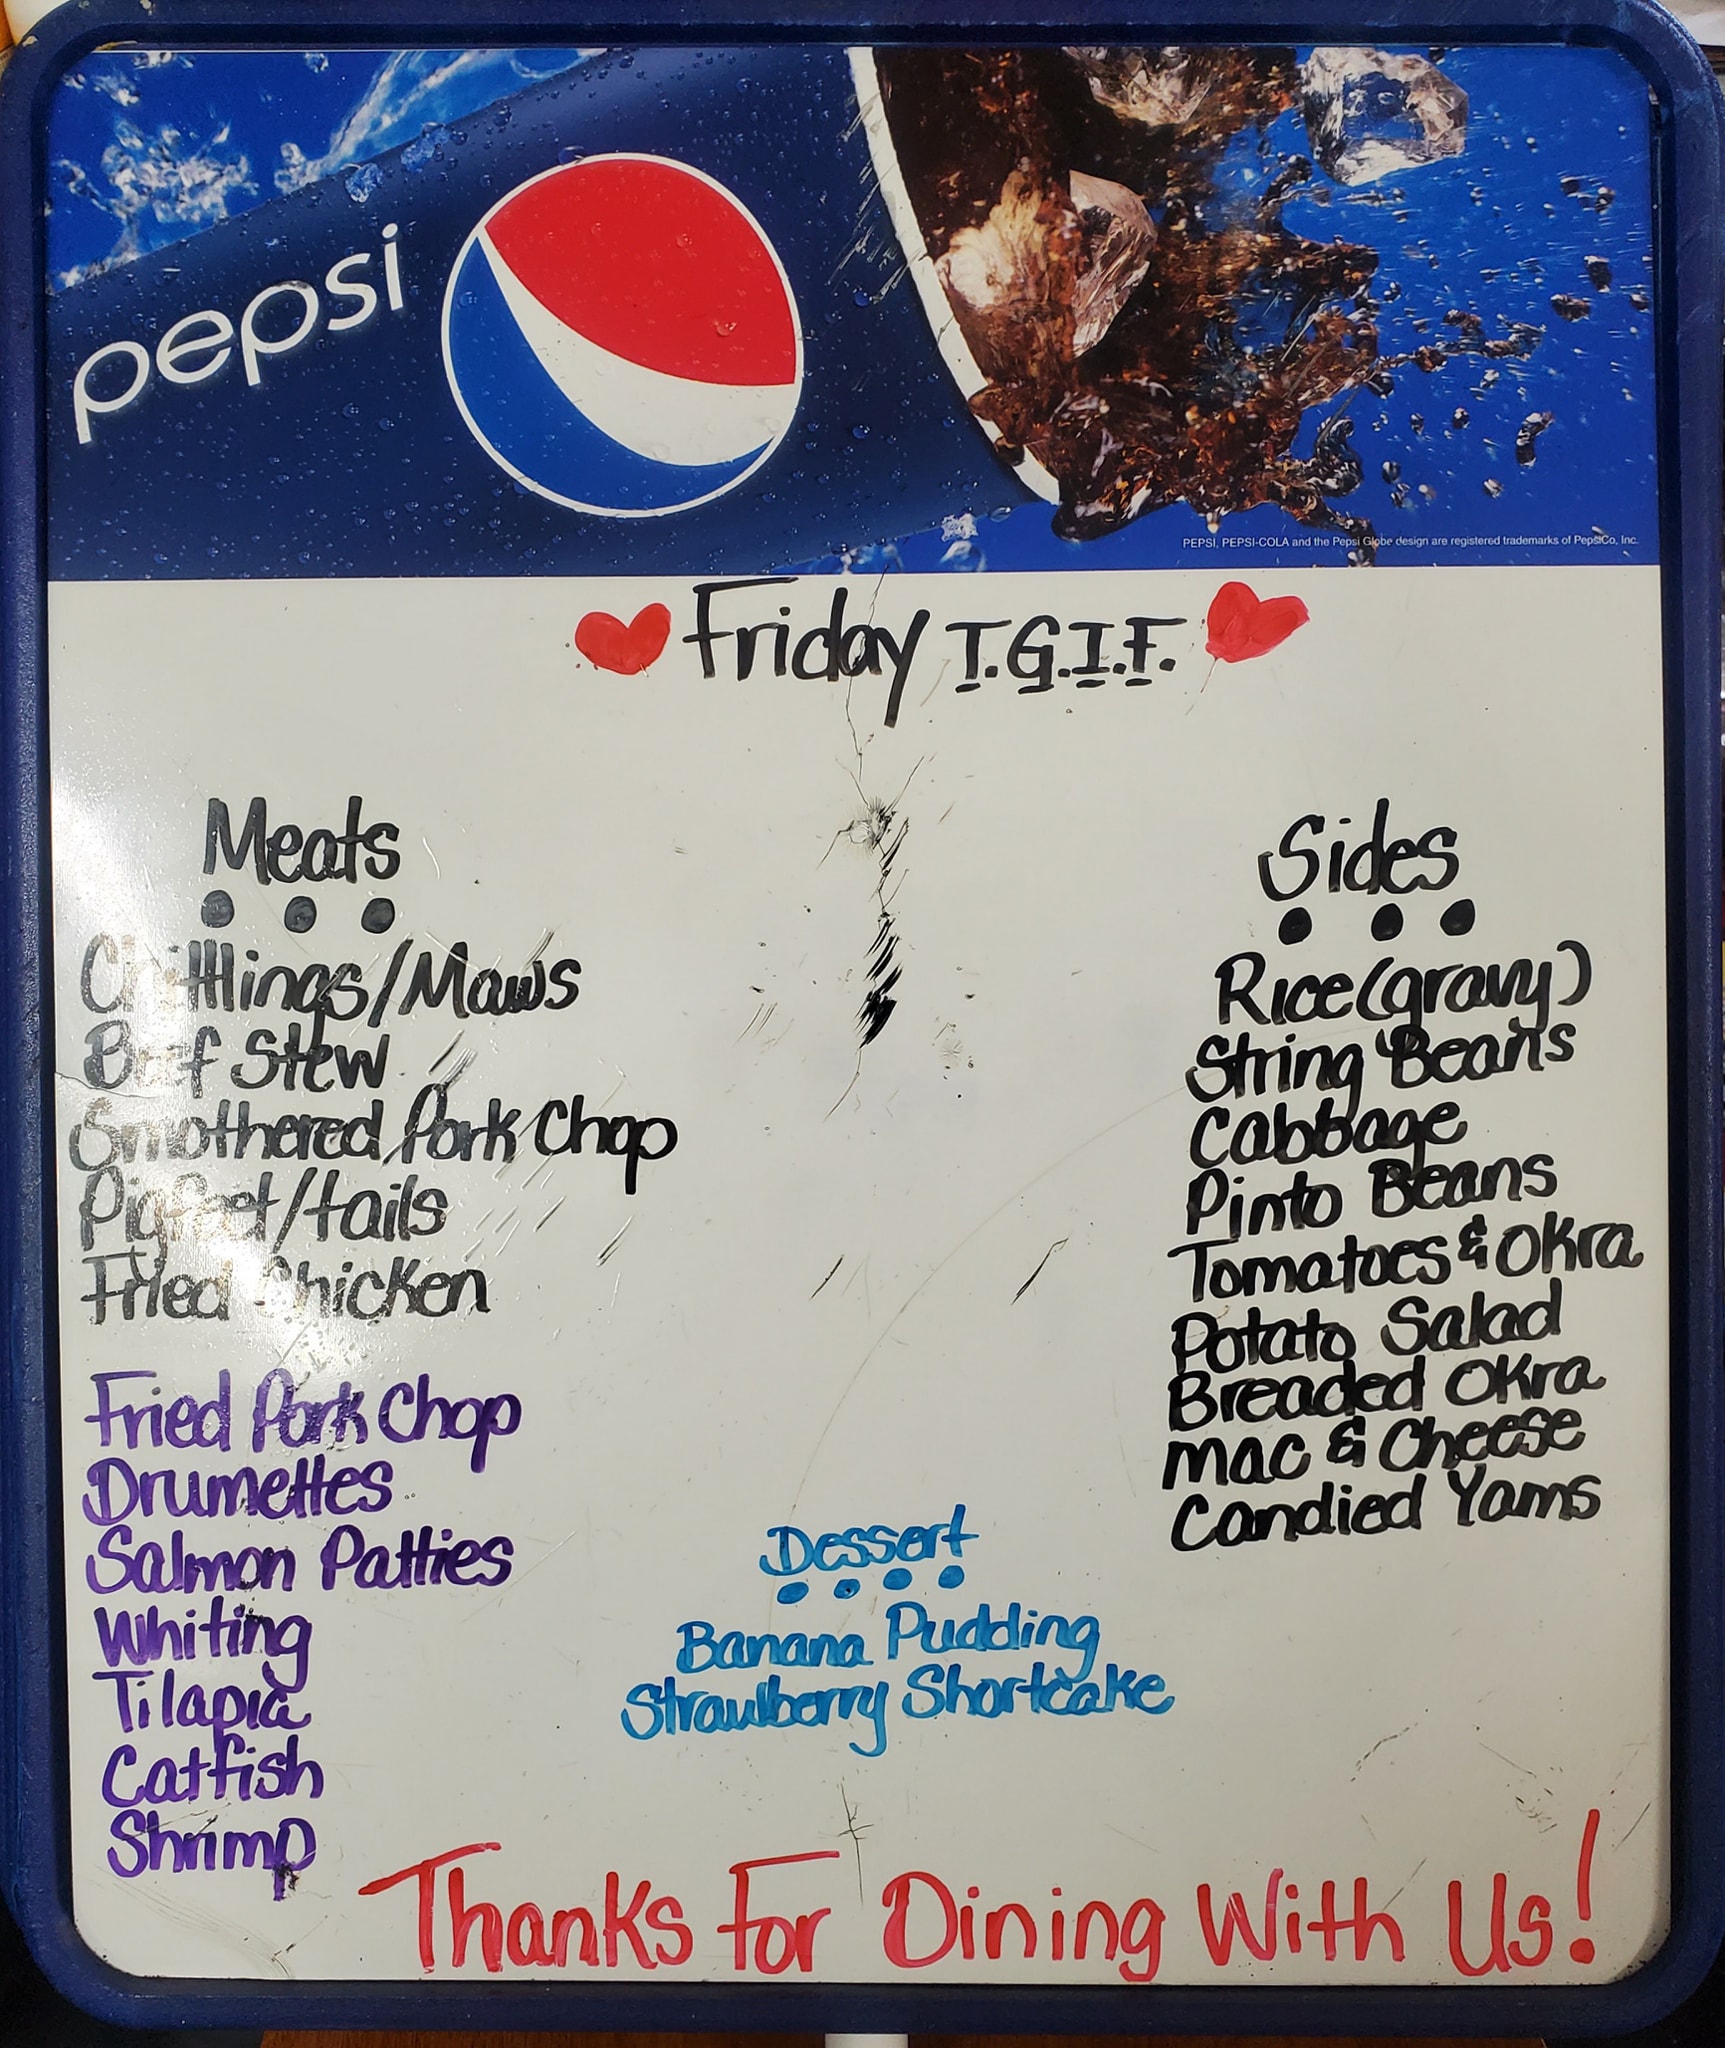 pepsi
PEPSI, PEPSI-COLA and the Pepsi Globe design are registered trademarks of PepsiCo, Inc.
Friday T.G.I.F.
Meats
Chitllings/Maws
Beef Stew
Smothered Pork Chop
Pigfeet/tails
Fried Chicken
Fried Pork Chop
Drumettes
Salmon Patties
Whiting
Tilapia
Catfish
Shrimp
Sides
Rice(gravy)
String Beans
Cabbage
Pinto Beans
Tomatoes & Okra
Potato Salad
Breaded Okra
Mac & Cheese
Candied Yams
Dessert
Banana Pudding
Strawberry Shortcake
Thanks For Dining With Us!